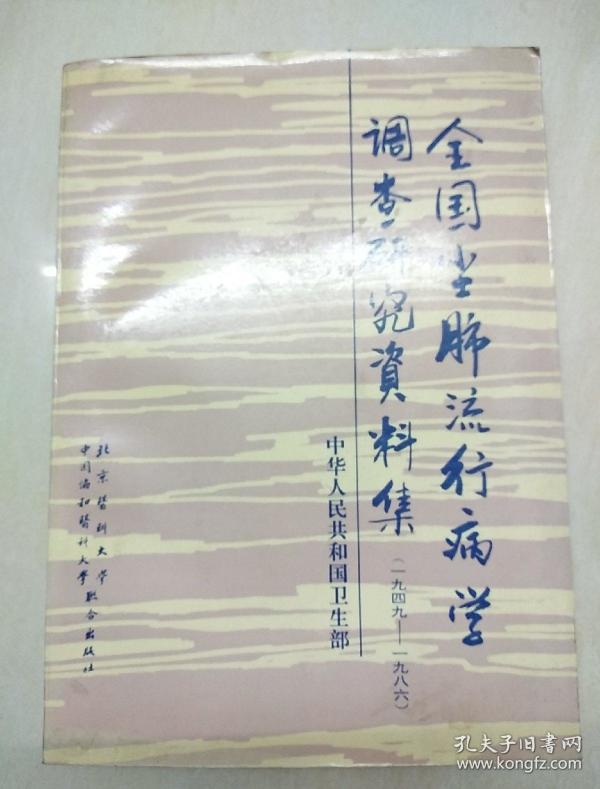 全国尘肺流行病学
调查研究資料集
(一九四九——一九八六)
中华人民共和国卫生部
北京醫科大学
中国协和醫科大学联合出版社
孔夫子旧书网
www.kongfz.com